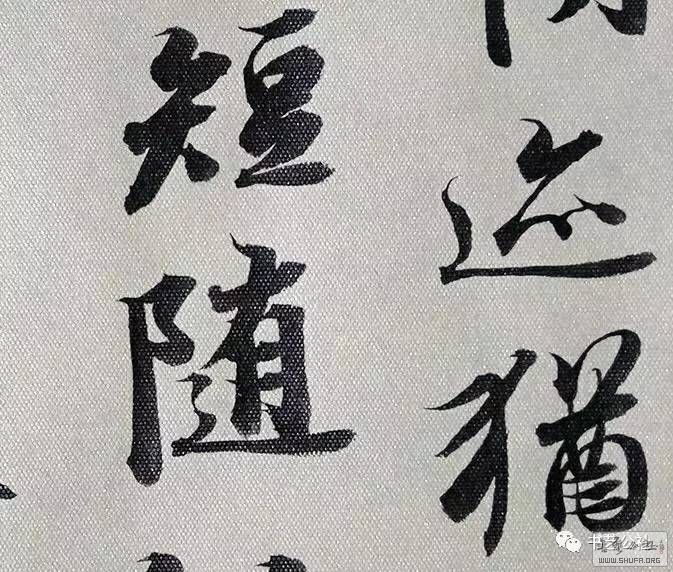 迹猶
短随
书艺公社
WWW.SHUFA.ORG